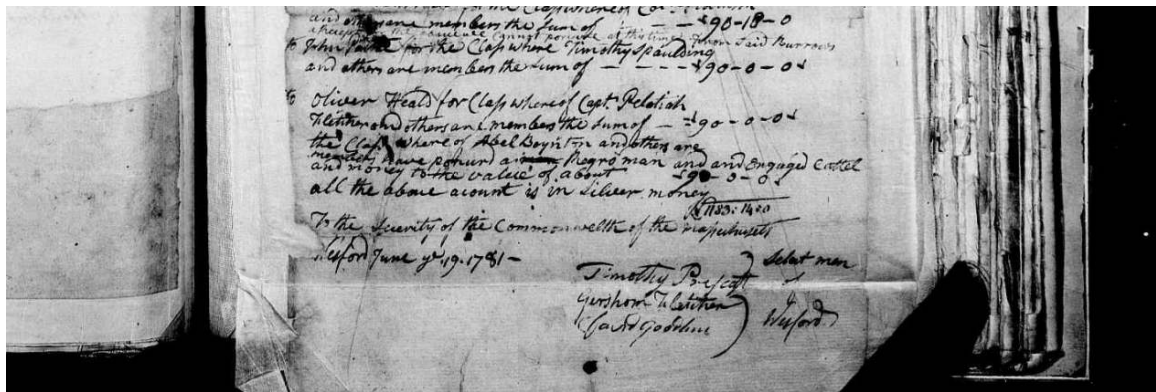 and others are members the Sum of - - - £90-18-0
cannot at this time from Said Burrows
to John for the Class where Timothy Spaulding
and others are members the Sum of - - - - £90-0-0
to Oliver Heald for Class where of Capt. Pelatiah
Fletcher and others are members the Sum of - £90-0-0
the Class where of Abel Boynton and others are
members have a Negro man and and Engaged Cattel
and money to the value of about £90-0-0
all the above acount is in Silver money
1183:14:0
To the Scerity of the Commonwelth of the Massachusets
Wesford June ye 19. 1781 -
Timothy Prescott
Gershom Fletcher
Select men
of
Wesford